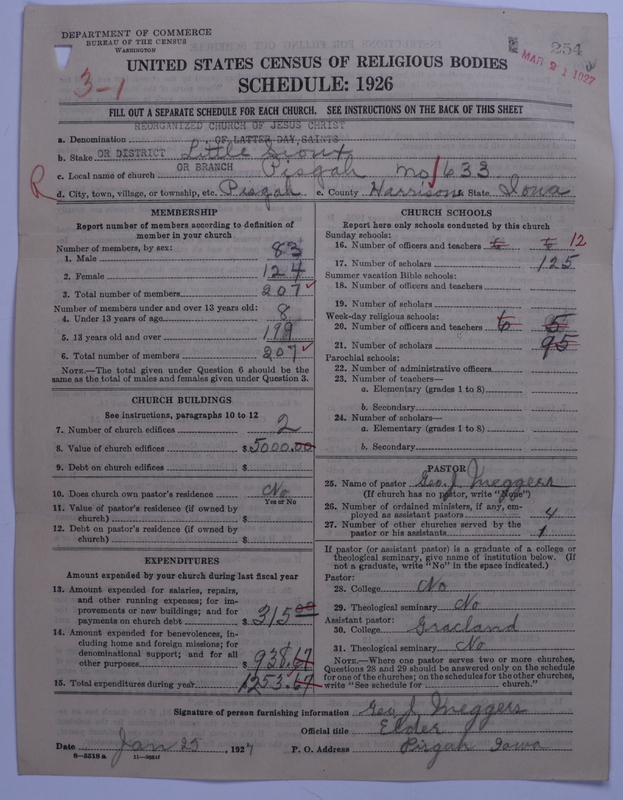 DEPARTMENT OF COMMERCE
BUREAU OF THE CENSUS
WASHINGTON
254
MAR 21 1927
3-1
UNITED STATES CENSUS OF RELIGIOUS BODIES
SCHEDULE: 1926
FILL OUT A SEPARATE SCHEDULE FOR EACH CHURCH. SEE INSTRUCTIONS ON THE BACK OF THIS SHEET
REORGANIZED CHURCH OF JESUS CHRIST
a. Denomination OF LATTER DAY SAINTS
b. Stake OR DISTRICT Little Sioux
c. Local name of church OR BRANCH Pisgah No 633
R
d. City, town, village, or township, etc. Pisgah e. County Harrison State Iowa
MEMBERSHIP
Report number of members according to definition of
member in your church
Number of members, by sex:
1. Male 83
2. Female 124
3. Total number of members 207
Number of members under and over 13 years old:
4. Under 13 years of age 8
5. 13 years old and over 199
6. Total number of members 207
NOTE.—The total given under Question 6 should be the
same as the total of males and females given under Question 3.
CHURCH BUILDINGS
See instructions, paragraphs 10 to 12
7. Number of church edifices 2
8. Value of church edifices $5000.00
9. Debt on church edifices $
10. Does church own pastor's residence No
Yes or No
11. Value of pastor's residence (if owned by
church) $
12. Debt on pastor's residence (if owned by
church) $
EXPENDITURES
Amount expended by your church during last fiscal year
13. Amount expended for salaries, repairs,
and other running expenses; for im-
provements or new buildings; and for
payments on church debt $315 00
14. Amount expended for benevolences, in-
cluding home and foreign missions; for
denominational support; and for all
other purposes $938.67
15. Total expenditures during year 1253.67
CHURCH SCHOOLS
Report here only schools conducted by this church
Sunday schools:
16. Number of officers and teachers 6 6 12
17. Number of scholars 125
Summer vacation Bible schools:
18. Number of officers and teachers
19. Number of scholars
Week-day religious schools:
20. Number of officers and teachers 6 5
21. Number of scholars 95
Parochial schools:
22. Number of administrative officers
23. Number of teachers—
a. Elementary (grades 1 to 8)
b. Secondary
24. Number of scholars—
a. Elementary (grades 1 to 8)
b. Secondary
PASTOR
25. Name of pastor Geo. J. Meggers
(If church has no pastor, write "None")
26. Number of ordained ministers, if any, em-
ployed as assistant pastors 4
27. Number of other churches served by the
pastor or his assistants 1
If pastor (or assistant pastor) is a graduate of a college or
theological seminary, give name of institution below. (If
not a graduate, write "No" in the space indicated.)
Pastor:
28. College No
29. Theological seminary No
Assistant pastor:
30. College Gracland
31. Theological seminary No
NOTE.—Where one pastor serves two or more churches,
Questions 28 and 29 should be answered only on the schedule
for one of the churches; on the schedules for the other churches,
write "See schedule for church."
Signature of person furnishing information Geo J. Meggers
Official title Elder
Date Jan 25, 1927 P. O. Address Pisgah Iowa
8-5518a